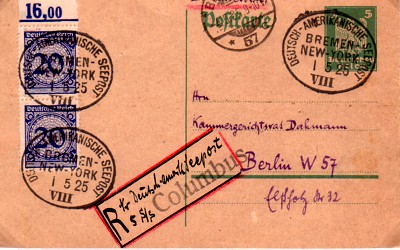 16,00
Postkarte
5
* 57
DEUTSCH-AMERIKANISCHE SEEPOST
BREMEN-
NEW-YORK
1 5 25
VIII
DEUTSCH-AMERIKANISCHE SEEPOST
BREMEN-
NEW-YORK
1 5 25
VIII
Deutsches Reich
20
Deutsches Reich
20
DEUTSCH-AMERIKANISCHE SEEPOST
BREMEN-
NEW-YORK
1 5 25
VIII
Hrn
Kammergerichtsrat Dahmann
Berlin W 57
Elßholz str 32
R
Deutsch-amerik Seepost
Columbus